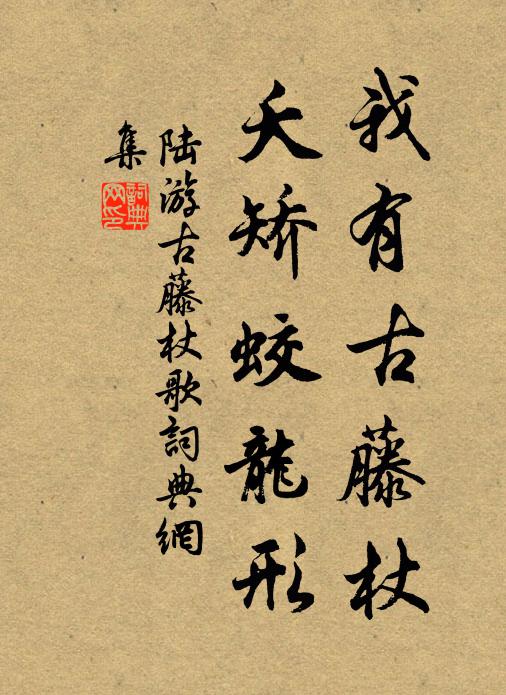 我有古藤杖
夭矯蛟龍形
陆游古藤杖歌詞典網
集
詞典
网印